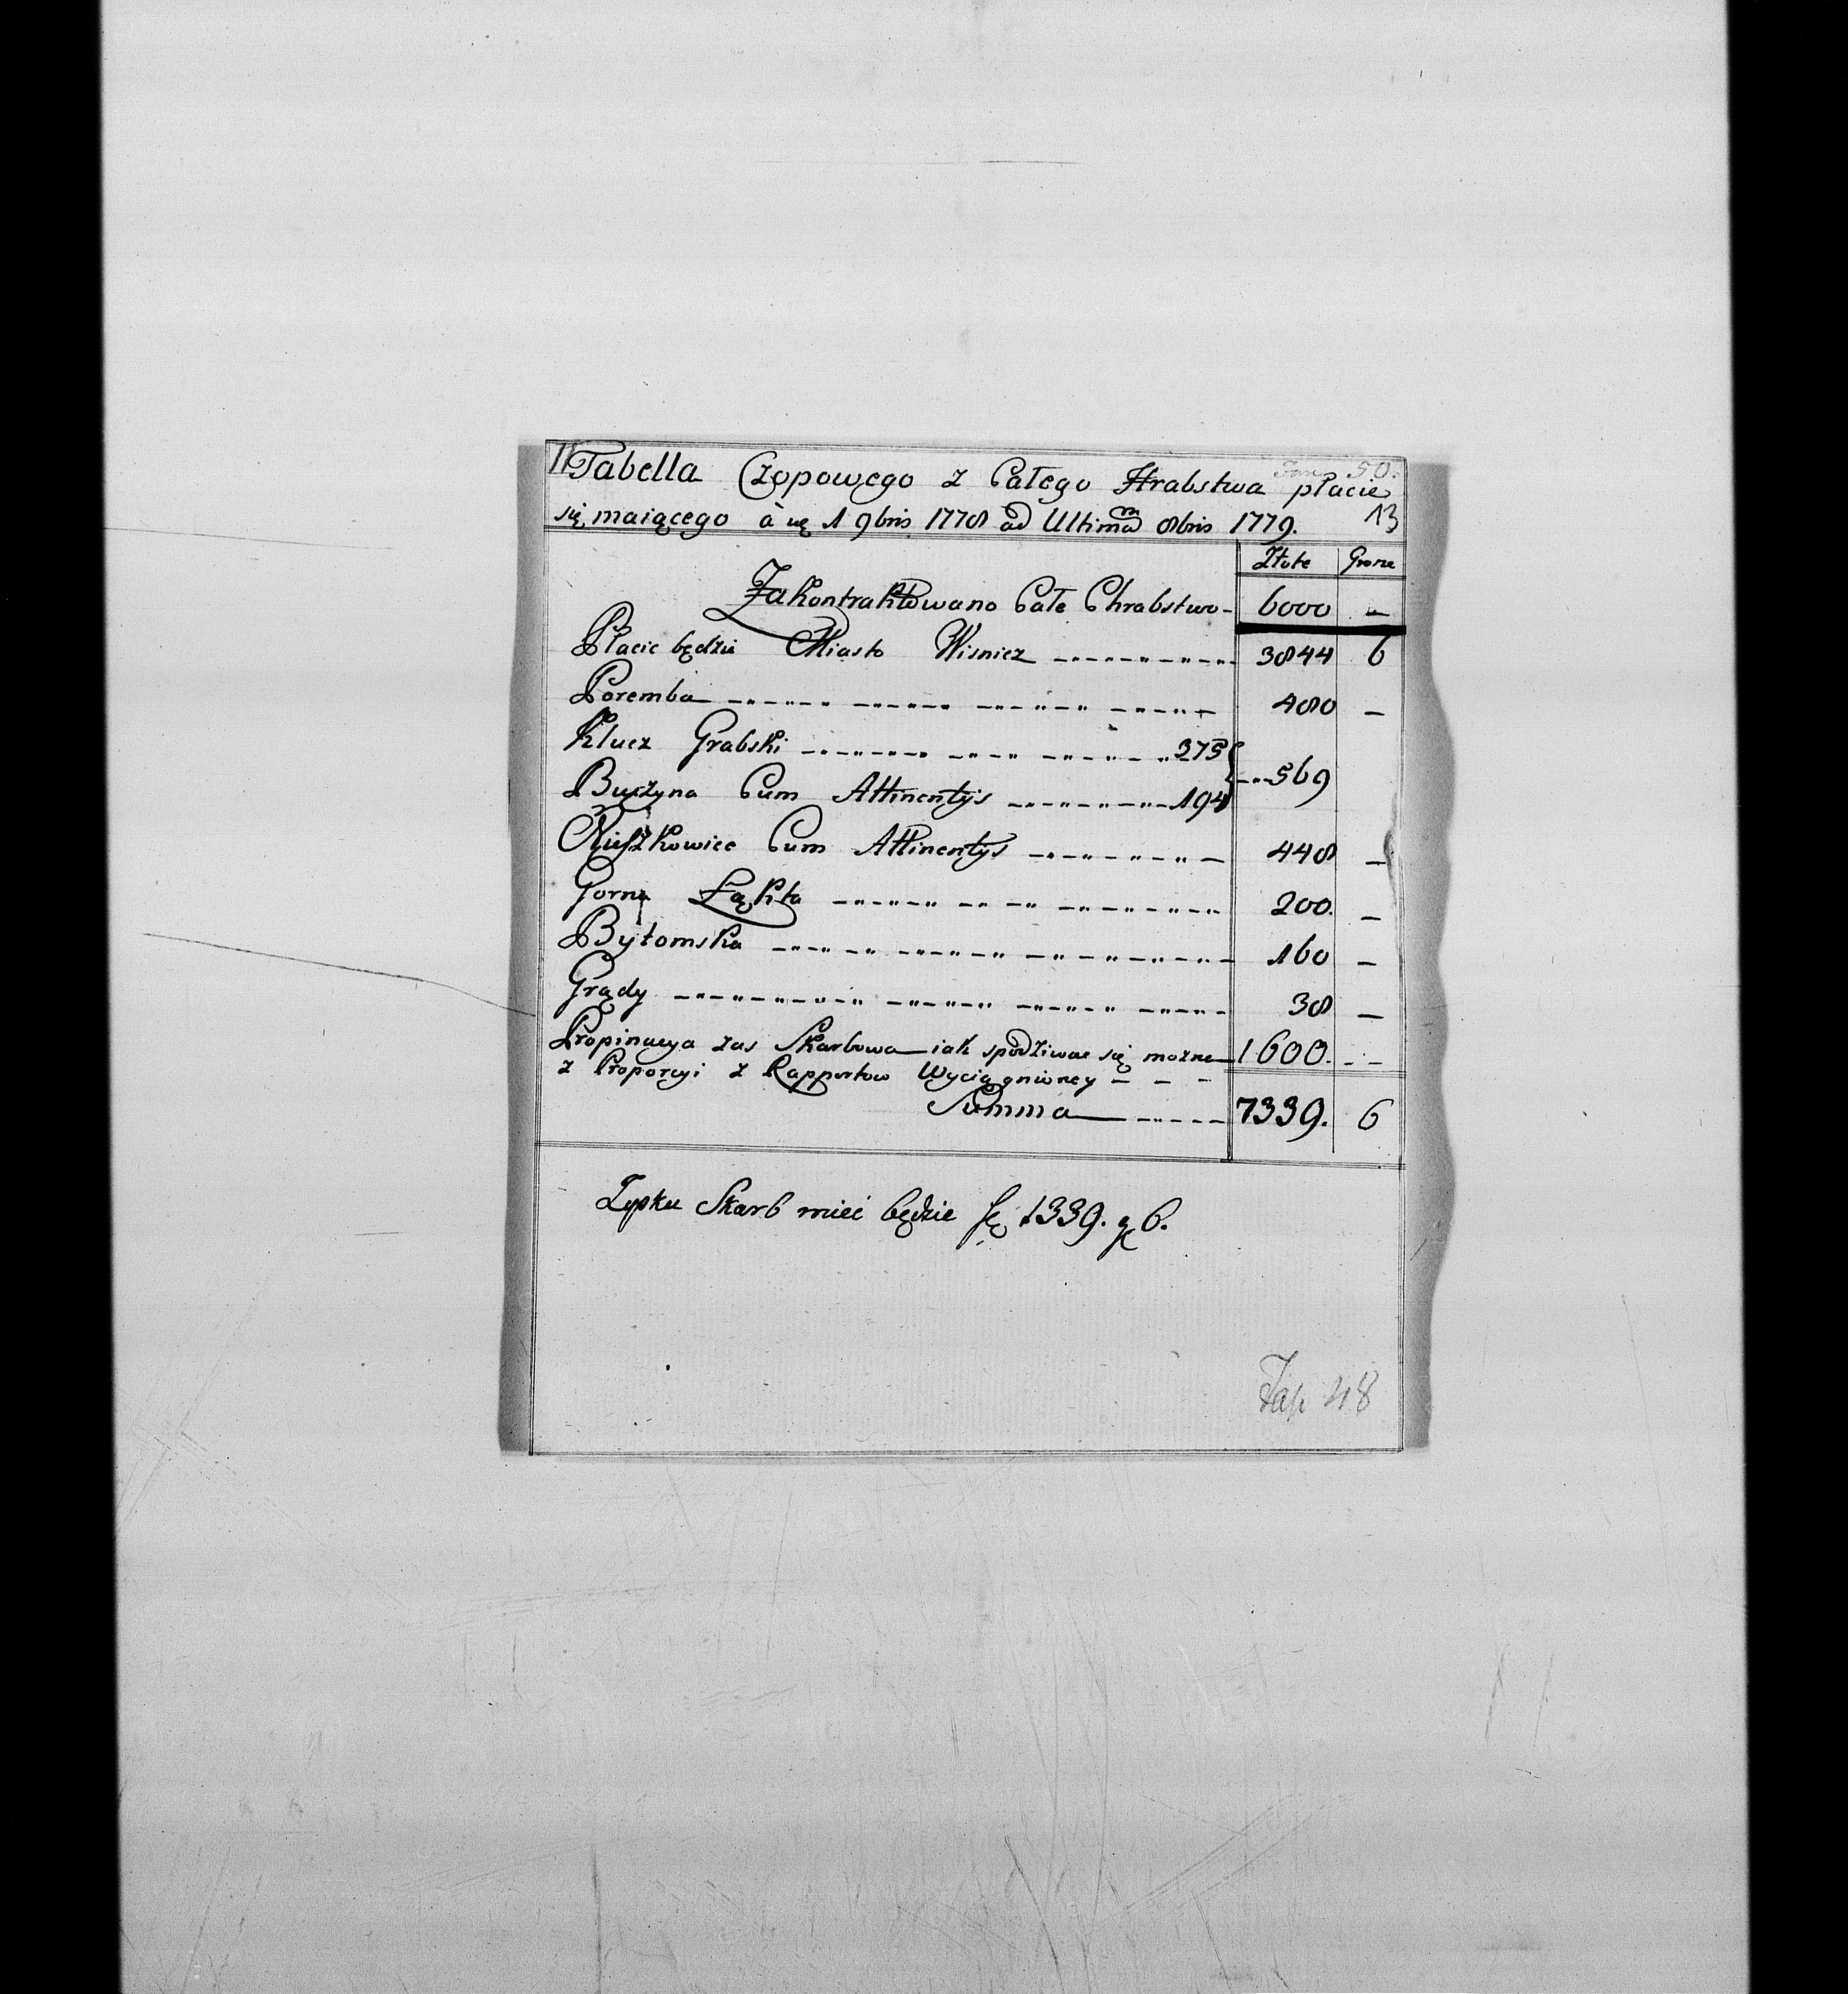 Tabella Czopowego z Całego Hrabstwa płacic 50.
się maiącego à 1 9bris 1778 ad Ultimam 8bris 1779. 13
Złote Grosze
Zakontraktowano Całe Chrabstwo 6000 —
Płacic będzie Miasto Wisnicz 3844 6
Poremba 480 —
Klucz Grabski 375
569
Buczyna Cum Attinentijs 194
Nieszkowice Cum Attinentijs 448 —
Gorna Łąkta 200. —
Bytomska 160 —
Grądy 38 —
Propinacya zas Skarbowa iak spodziwac się mozna 1600. —
z Proporcyi z Rapportow Wyciągnioney
Summa 7339. 6
Zysku Skarb mieć będzie 1339. g 6.
48